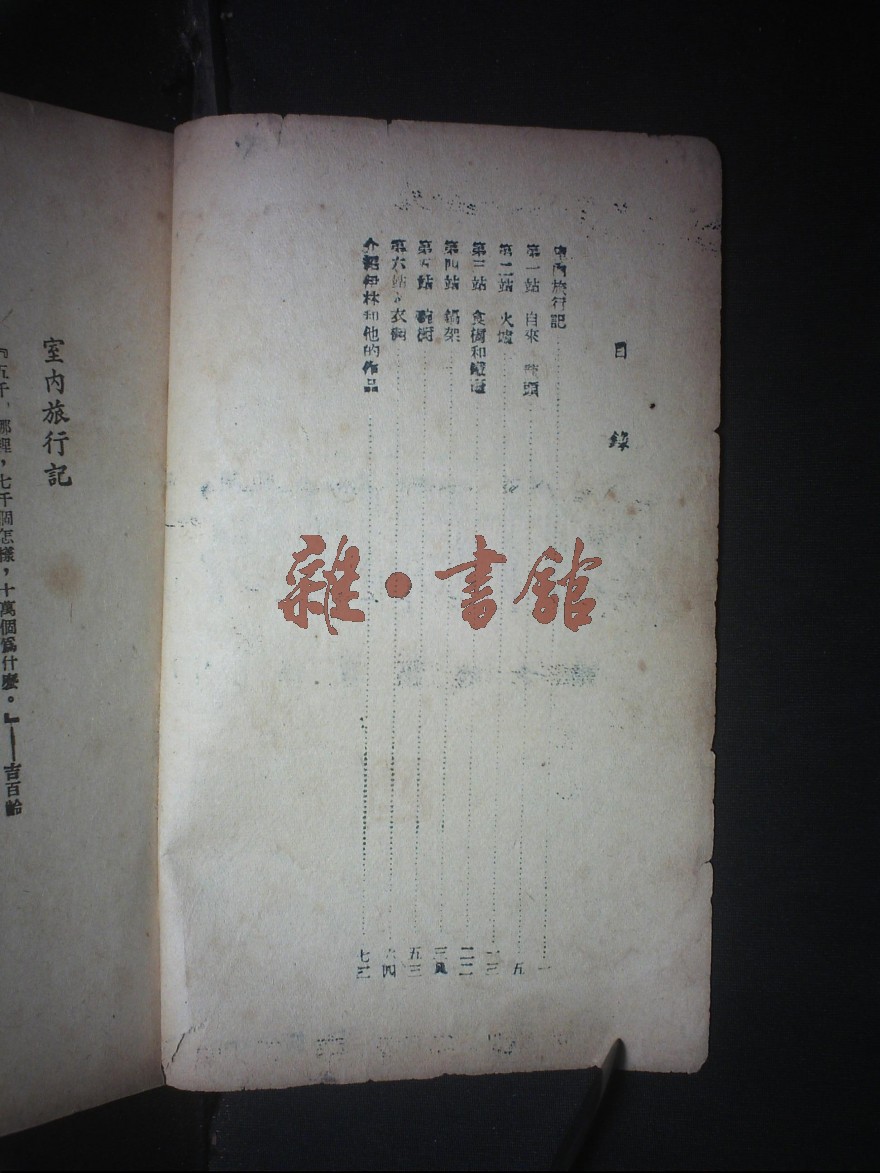 目錄
室內旅行記 一
第一站 自來 龍頭 五
第二站 火爐 一三
第三站 食櫥和 二二
第四站 鍋架 三
第五站 碗櫥 五三
第六站 衣櫥 六四
介紹伊林和他的作品 七三
室內旅行記
『五千個那裡,七千個怎樣,十萬個爲什麼。』——吉百齡
雜·書舘